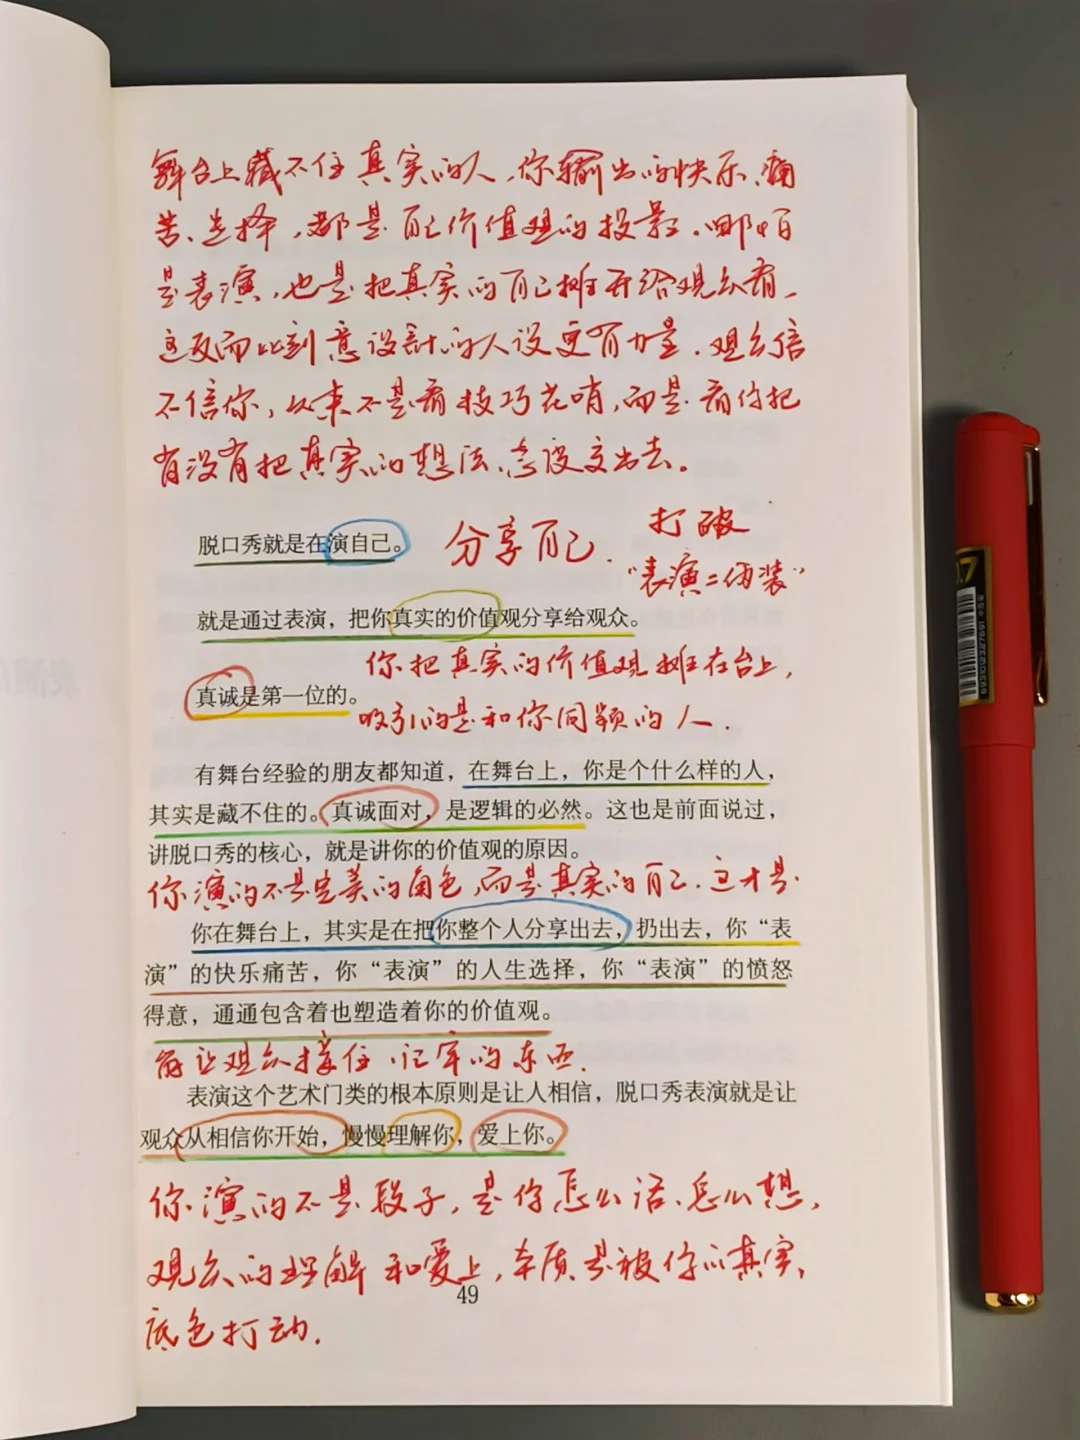 舞台上藏不住真实的人,你输出的快乐、痛
苦、选择,都是自己价值观的投影。哪怕
是表演,也是把真实的自己摊开给观众看,
这反而比刻意设计的人设更有力量。观众信
不信你,从来不是看技巧花哨,而是看你把
有没有把真实的想法、态度交出去。
脱口秀就是在演自己。
分享自己.
打破
“表演=伪装”
就是通过表演,把你真实的价值观分享给观众。
你把真实的价值观摊在台上,
真诚是第一位的。
吸引的是和你同频的人.
有舞台经验的朋友都知道,在舞台上,你是个什么样的人,
其实是藏不住的。真诚面对,是逻辑的必然。这也是前面说过,
讲脱口秀的核心,就是讲你的价值观的原因。
你演的不是完美的角色,而是真实的自己.这才是
你在舞台上,其实是在把你整个人分享出去,扔出去,你“表
演”的快乐痛苦,你“表演”的人生选择,你“表演”的愤怒
得意,通通包含着也塑造着你的价值观。
能让观众接住、记牢的东西.
表演这个艺术门类的根本原则是让人相信,脱口秀表演就是让
观众从相信你开始,慢慢理解你,爱上你。
你演的不是段子,是你怎么活、怎么想,
观众的理解和爱上,本质是被你的真实
49
底色打动.
0.7